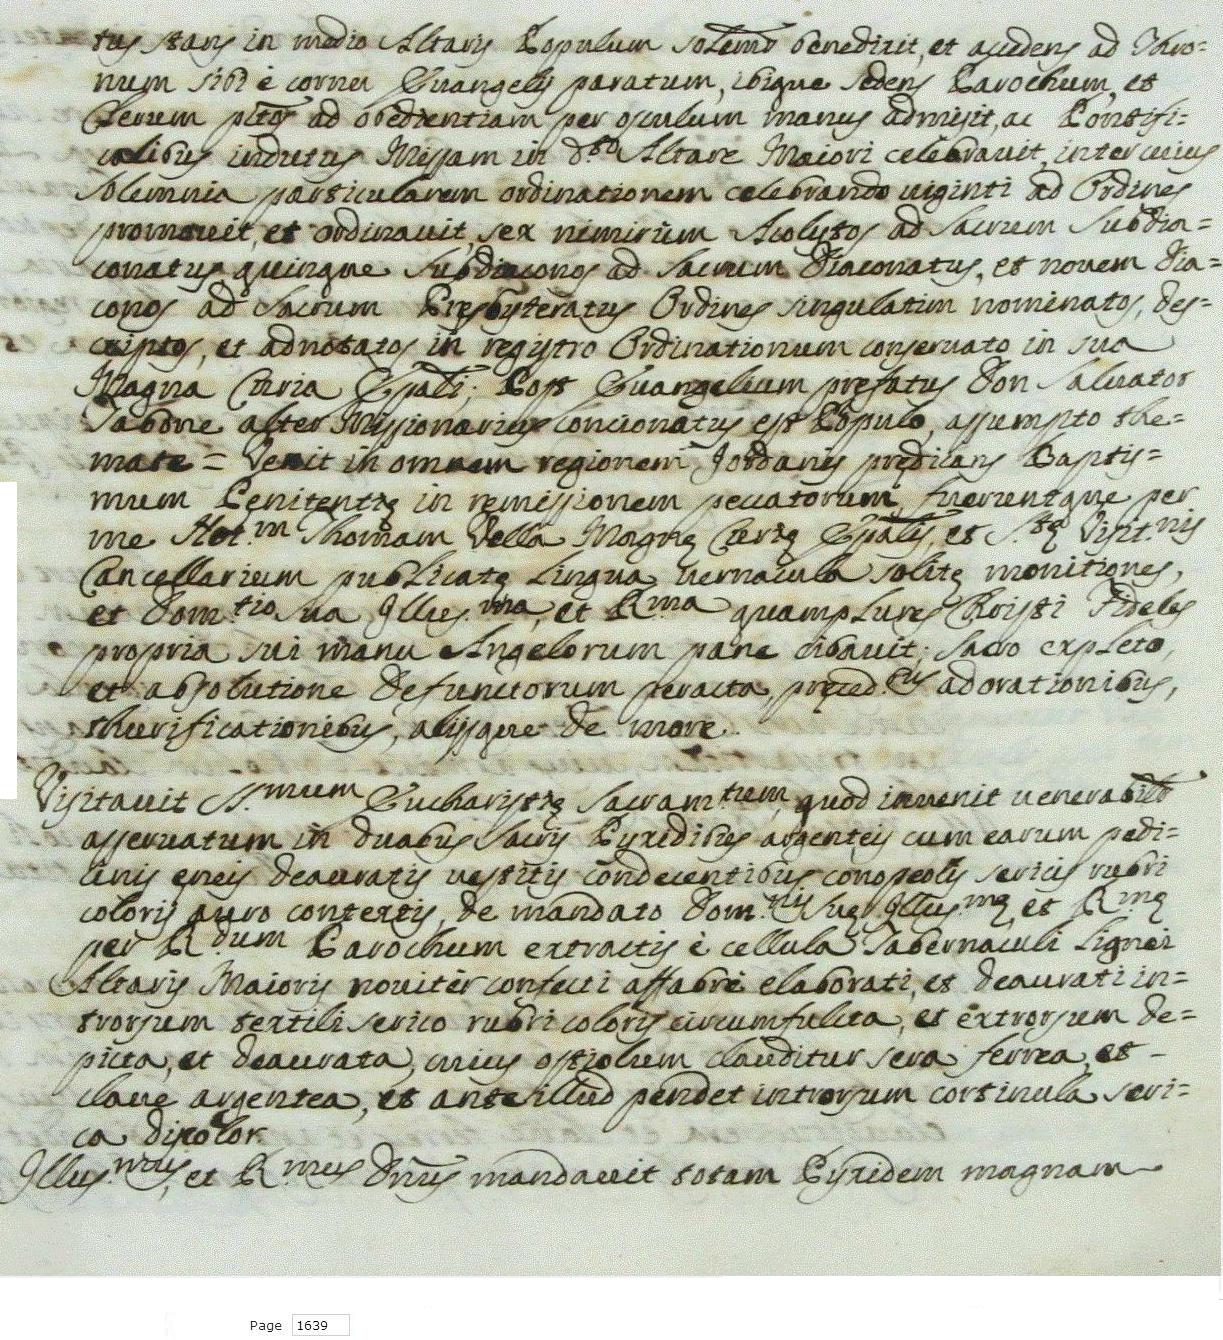 tus stans in medio Altaris Populum solemr benedixit, et accedens ad Thro=
num sibi è cornu Euangelij paratum, ibique sedens Parochum, et
Clerum ptos ad obedientiam per osculum manus admisit, ac Pontifi=
calibus indutus Missam in dto Altare Maiori celebrauit, inter cuius
solemnia particularem ordinationem celebrando uiginti ad Ordines
promouit, et ordinauit, sex nimirùm Acolytos ad Sacrum Subdia=
conatus, quinque Subdiaconos ad Sacrum Diaconatus, et nouem Dia=
conos ad Sacrum Presbyteratus Ordines singulatim nominatos, des=
criptos, et adnotatos in registro Ordinationum conseruato in sua
Magna Curia Epali; Post Euangelium prefatus Don Saluator
alter Missionarius concionatus est Populo, assumpto the=
mate = Venit in omnem regionem Jordanis prędicans Baptis=
mum Penitentię in remissionem peccatorum, fueruntque per
me Not.m Thomam Vella Magnę Curię Epalis, et S.tę Visit.nis
Cancellarium publicatę Lingua uernacula solitę monitiones,
et Dom.tio sua Illus.ma, et R.ma quamplures Christi Fideles
propria sui manu Angelorum pane cibauit; Sacro expleto,
et absolutione defunctorum peracta, pręced.bus adorationibus,
thurificationibus, alijsque de more.
Visitauit SS.mum Eucharistię Sacram.tum, quod inuenit uenerabilr
asseruatum in duabus Sacris Pyxidibus argenteis cum earum pedi=
culis eneis deauratis uestitis condecentibus conopeolis sericis rubri
coloris auro contextis, de mandato Dom.nis Suę Illus.mę, et R.mę
per R.dum Parochum extractis è cellula Tabernaculi Lignei
Altaris Maioris nouiter confecti affabrè elaborati, et deaurati in=
trorsum textili serico rubri coloris circumfulcita, et extrorsum de=
picta, et deaurata, cuius ostiolum clauditur sera ferrea, et
claue argentea, et ante illud pendet introrsum cortinula seri=
ca dicolor
Illus.mus, et R.mus Dnus mandauit totam Pyxidem magnam
Page 1639